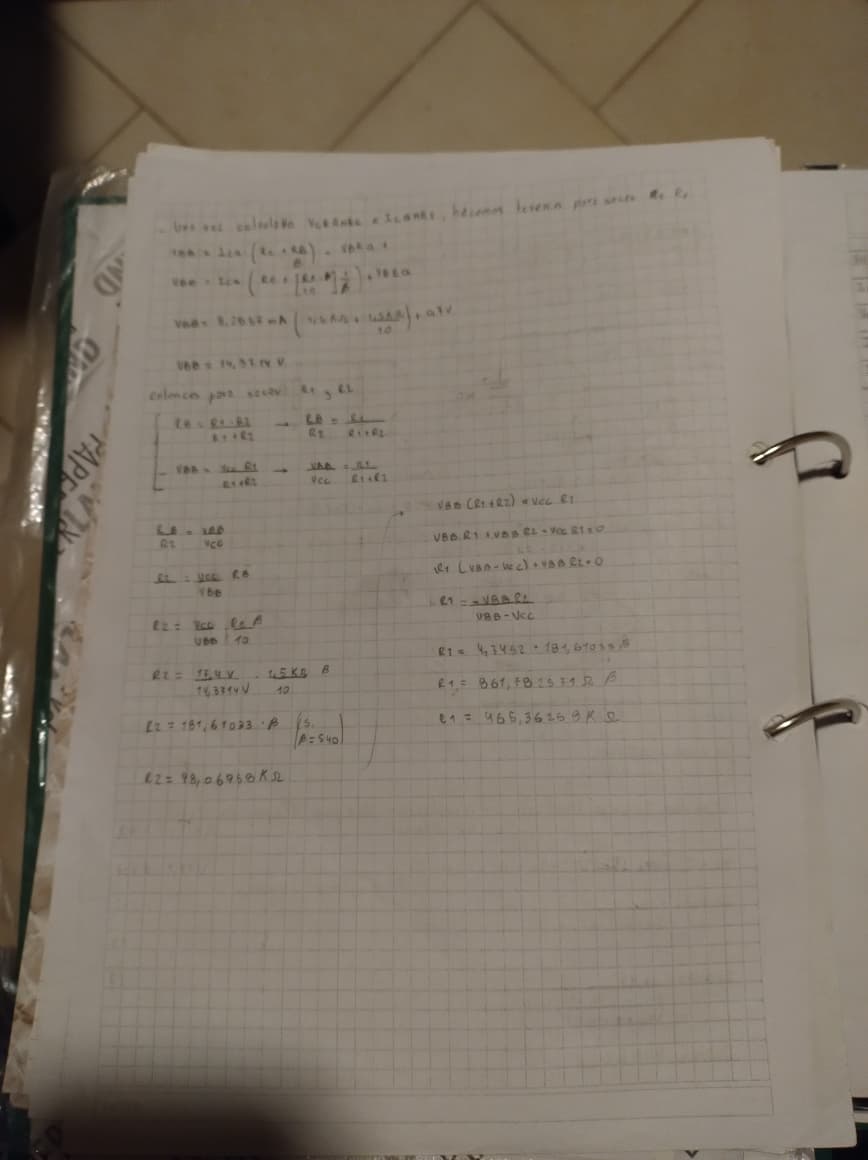 Una vez calculado VCEQMAX e ICQMAX, hacemos
VBB = ICQ (RE + RB/β) + VBEQ
VBB = ICQ (RE + [RE·β/10] 1/β) + VBEQ
VBB = 8,2657 mA (1,5 KΩ + 1,5 KΩ/10) + 0,7 V
VBB = 14,3314 V
Entonces para sacar R1 y R2
RB = R1·R2/R1+R2 → RB/R2 = R1/R1+R2
VBB = VCC R1/R1+R2 → VBB/VCC = R1/R1+R2
RB/R2 = VBB/VCC
R2 = VCC/VBB RB
R2 = VCC/VBB RE β/10
R2 = 17,4 V/14,3314 V · 1,5 KΩ/10 β
R2 = 181,61033 · β (S. β=540)
R2 = 98,06958 KΩ
VBB (R1+R2) = VCC R1
VBB R1 + VBB R2 - VCC R1 = 0
R1 (VBB - VCC) + VBB R2 = 0
R1 = -VBB R2/VBB-VCC
R1 = 4,7452 · 181,61033 β
R1 = 861,782531 Ω β
R1 = 465,36258 KΩ